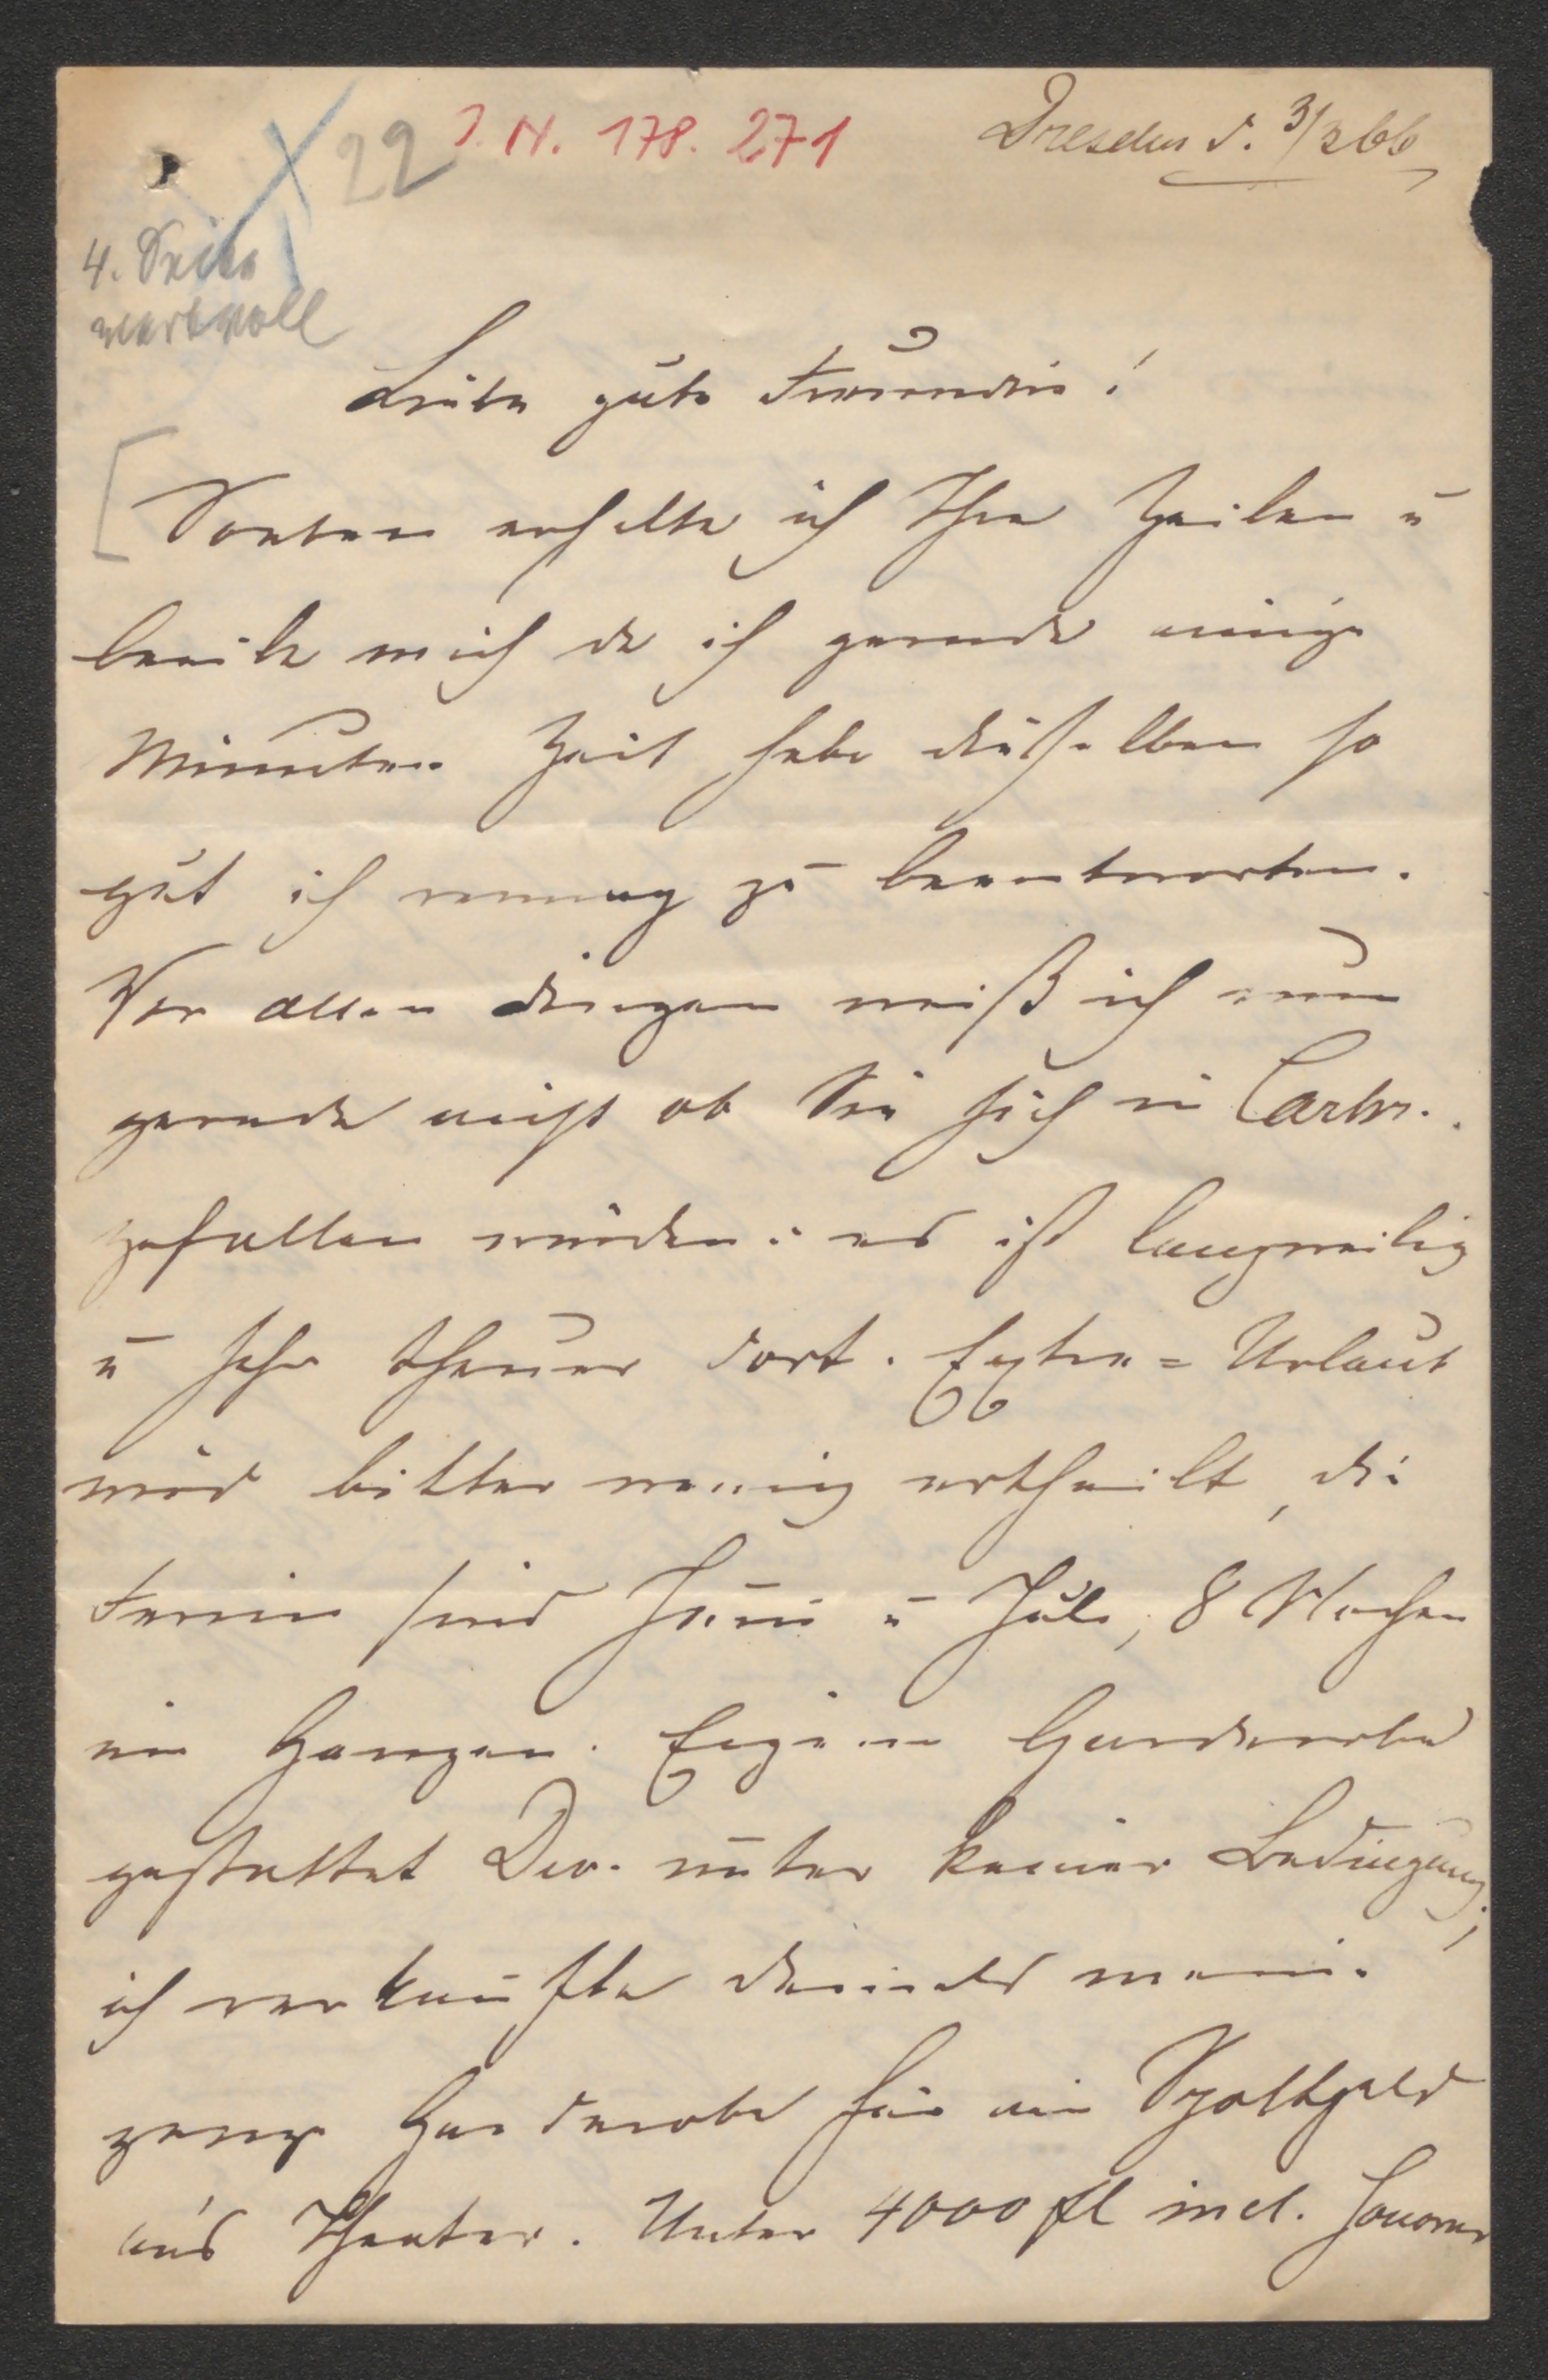 22 I. N. 178. 271 Dresden d. 3/2 66
4. Seite
wertvoll
Liebe gute Freundin!
Soeben erhalte ich Ihre Zeilen u
beeile mich da ich gerade einige
Minuten Zeit habe dieselben so
gut ich vermag zu beantworten.
Vor allen Dingen weiß ich nun
gerade nicht ob Sie sich in Carlsr.
gefallen würden: es ist langweilig
u sehr theuer dort. Extra-Urlaub
wird bitter wenig ertheilt, die
Ferien sind Juni u Juli, 8 Wochen
im Ganzen. Eigene Garderobe
gestattet Dev. unter keiner Bedingung;
ich verkaufte damals meine
ganze Garderobe für ein Spottgeld
an's Theater. Unter 4000 fl incl. Honorar